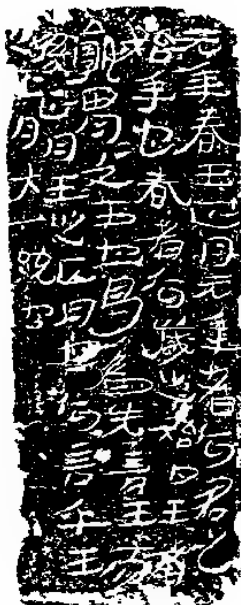 元年春王正月元年者何君之
始年也春者何歲之始也王者
孰謂謂文王也曷為先言王而
後言正月王正月也何言乎王
正月大一統也